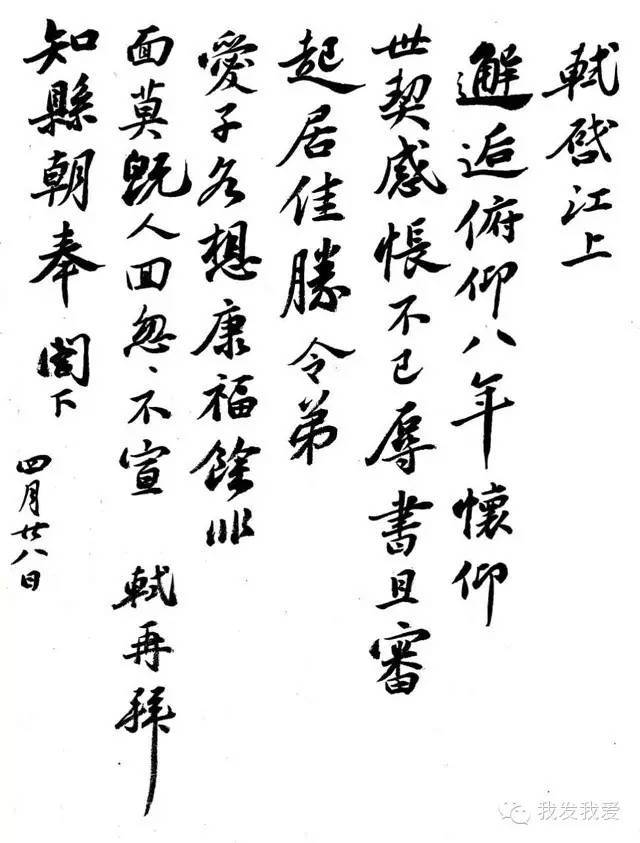 軾啓江上
邂逅俯仰八年懷仰
世契感悵不已辱書且審
起居佳勝令弟
愛子各想康福餘非
面莫既人回怱、不宣 軾再拜
知縣朝奉 閣下
四月廿八日
我发我爱